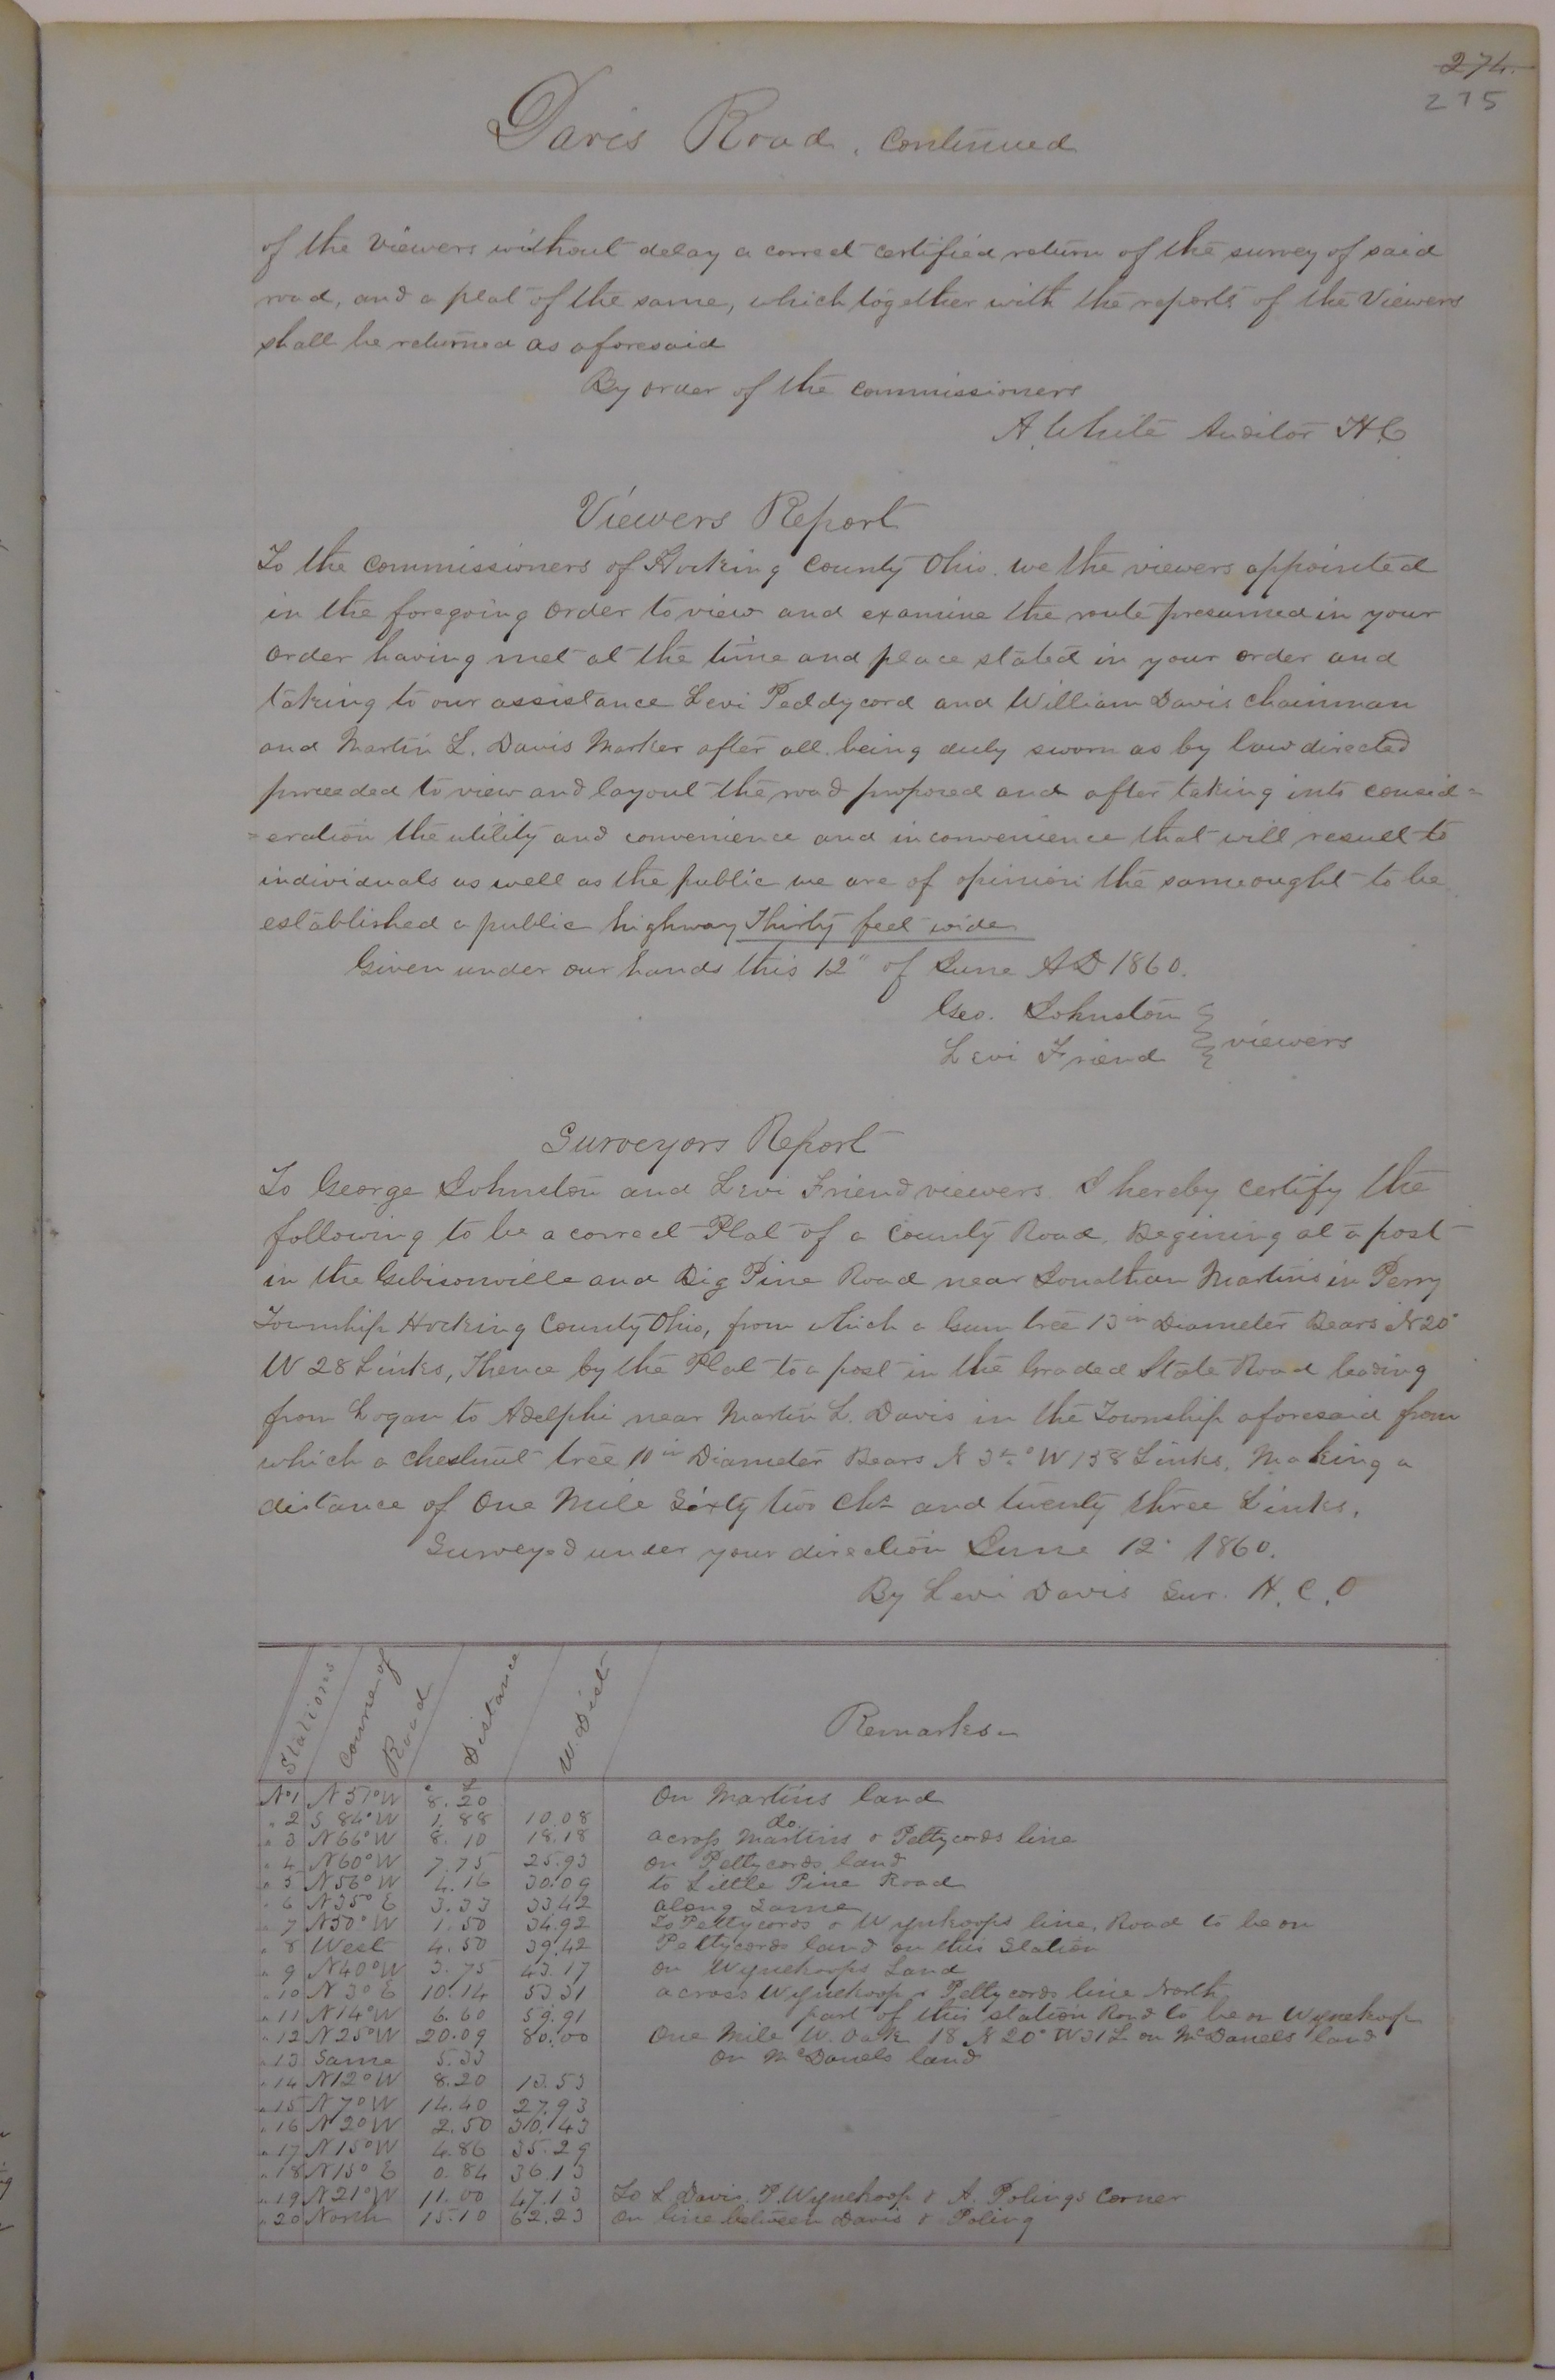 274.
275
Davis Road. Continued
of the Viewers without delay a correct certified return of the survey of said
road, and a plat of the same, which together with the reports of the Viewers
shall be returned as aforesaid
By order of the commissioners
A. White Auditor H.C
Viewers Report
To the Commissioners of Hocking County Ohio. we the viewers appointed
in the foregoing order to view and examine the route presumed in your
order having met at the time and place stated in your order and
taking to our assistance Levi Peddycord and William Davis Chainman
and Martin L. Davis Marker after all being duly sworn as by law directed
proceeded to view and layout the road proposed and after taking into consid=
=eration the utility and convenience and inconvenience that will result to
individuals as well as the public we are of opinion the same ought to be
established a public highway Thirty feet wide
Given under our hands this 12" of June AD 1860.
Geo. Johnston
Levi Friend } viewers
Surveyors Report
To George Johnston and Levi Friend viewers. I hereby certify the
following to be a correct Plat of a County Road. Begining at a post
in the Gibisonville and Big Pine Road near Jonathan Martins in Perry
Township Hocking County Ohio, from which a Gum tree 13 in Diameter Bears N 20°
W 28 Links, Thence by the Plat to a post in the Graded State Road leading
from Logan to Adelphi near Martin L. Davis in the Township aforesaid from
which a chestnut tree 10 in Diameter Bears N W 138 Links. Making a
distance of One Mile Sixty two chs and twenty three Links.
Surveyed under your direction June 12 1860.
By Levi Davis Sur. H. C. O
Stations Course of Road Distance W. Dist Remarks
No 1 N 51° W 8.20 On Martins land
" 2 S 84° W 1.88 10.08 do
" 3 N 66° W 8.10 18.18 across Martins & Pettycords line
" 4 N 60° W 7.75 25.93 on Pettycords land
" 5 N 56° W 4.16 30.09 to Little Pine Road
" 6 N 35° E 3.33 33.42 along Same
" 7 N 50° W 1.50 34.92 To Pettycords & Wynkoops line, Road to be on
" 8 West 4.50 39.42 Pettycords land on this Station
" 9 N 40° W 3.75 43.17 on Wynekoops Land
" 10 N 3° E 10.14 53.31 across Wynekoop & Pettycords line North
" 11 N 14° W 6.60 59.91 part of this station Road to be on Wynekoop
" 12 N 25° W 20.09 80.00 One Mile W. Oak 18 N 20° W 31 L on McDanels land
" 13 Same 5.33 On McDanels land
" 14 N 12° W 8.20 13.53
" 15 N 7° W 14.40 27.93
" 16 N 2° W 2.50 30.43
" 17 N 15° W 4.86 35.29
" 18 N 15° E 0.84 36.13
" 19 N 21° W 11.00 47.13 To L Davis, P. Wynekoop & A. Polings Corner
" 20 North 15.10 62.23 On line between Davis & Poling